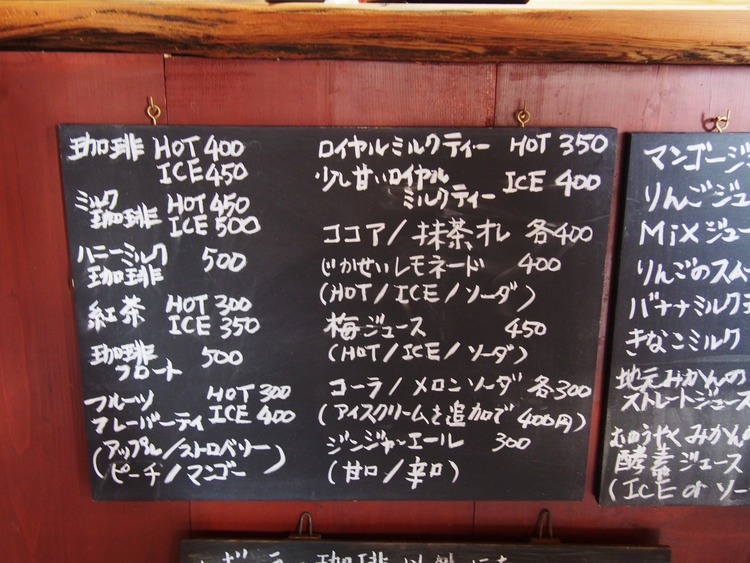 珈琲 HOT 400
ICE 450
ミルク
珈琲 HOT 450
ICE 500
ハニーミルク
珈琲 500
紅茶 HOT 300
ICE 350
珈琲
フロート 500
フルーツ HOT 300
フレーバーティ ICE 400
(アップル/ストロベリー
ピーチ/マンゴー)
ロイヤルミルクティー HOT 350
少し甘いロイヤル
ミルクティー ICE 400
ココア/抹茶オレ 各400
じかせいレモネード 400
(HOT/ICE/ソーダ)
梅ジュース 450
(HOT/ICE/ソーダ)
コーラ/メロンソーダ 各300
(アイスクリームを追加で 400円)
ジンジャーエール 300
(甘口/辛口)
マンゴージ
りんごジュ
MiXジュー
りんごのスム
バナナミルク
きなこミルク
地元みかんの
ストレートジュース
むのうやくみかん
酵素ジュース
(ICE or ソー
珈琲以外